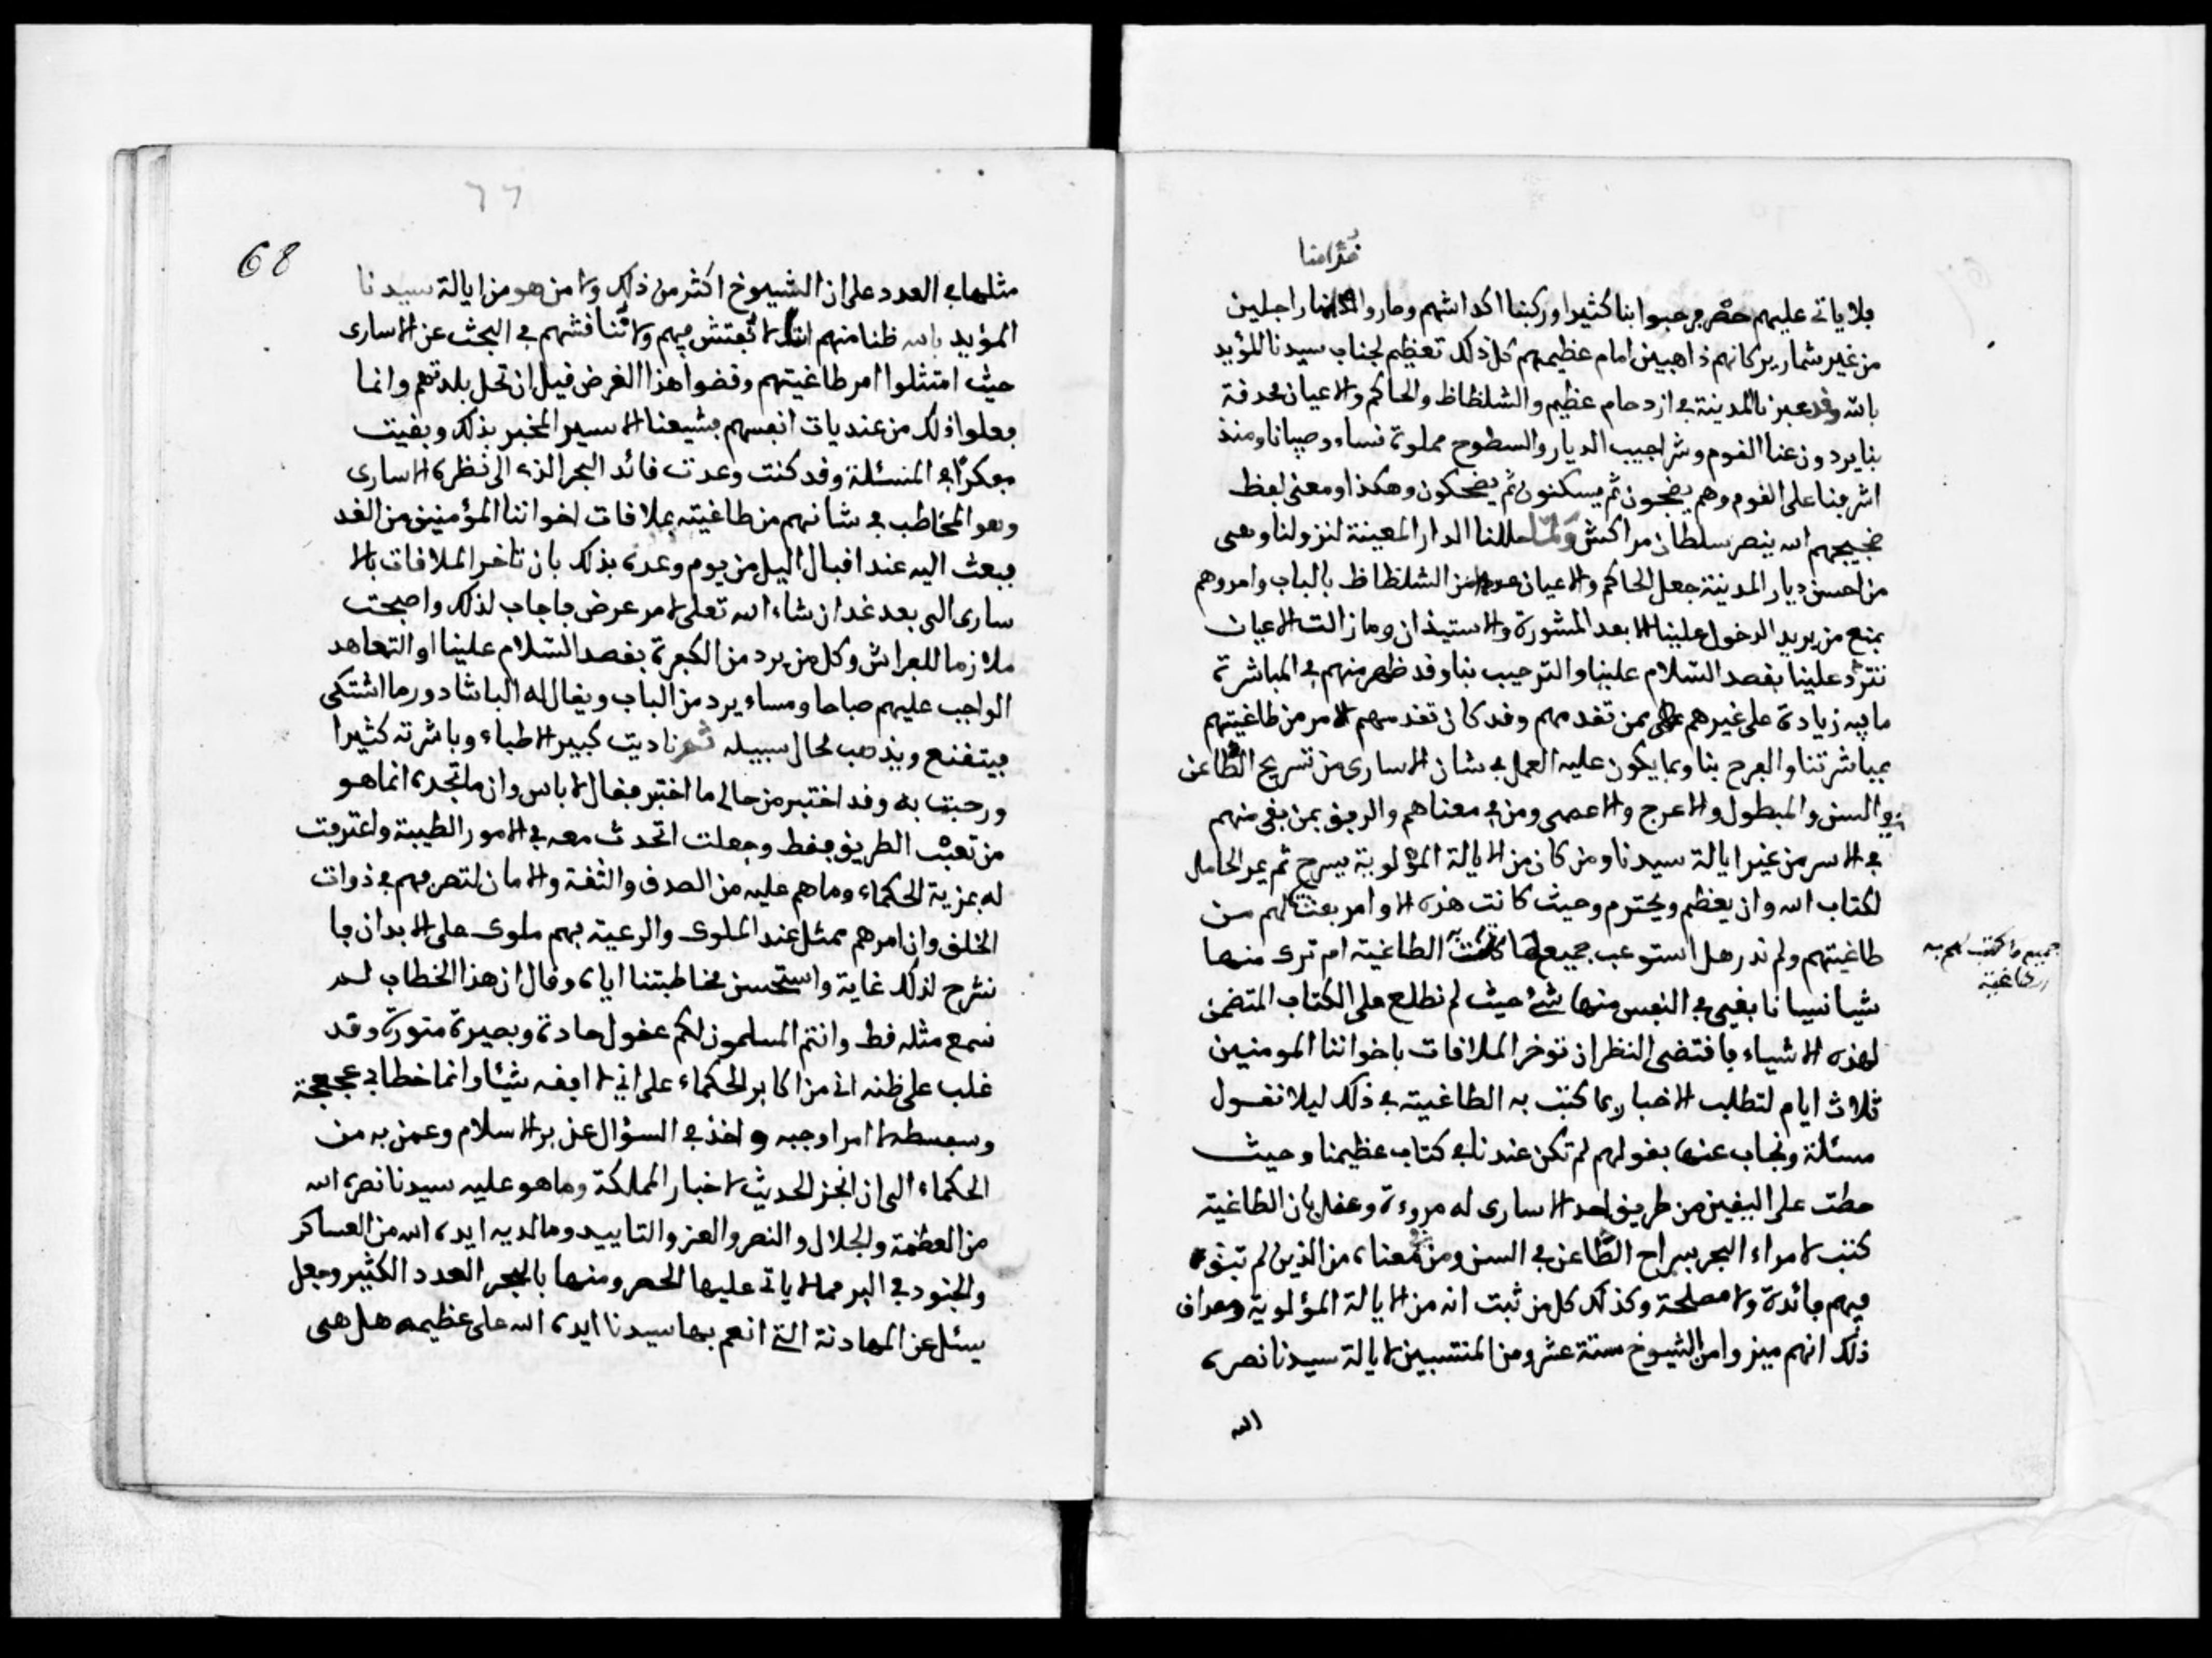 قدامنا
فلا ياتى عليهم حصر فرحبوا بنا كثيرا وركبنا اكداشهم وصاروا امامنا راجلين
من غير شمارير كانهم ذاهبين امام عظيمهم كل ذلك تعظيم لجناب سيدنا المؤيد
بالله وقد عبرنا المدينة فى ازدحام عظيم والشلظاظ والحاكم والاعيان محدقة
بنا يردون عنا القوم وشراجيب الديار والسطوح مملوة نساء وصبيانا ومنذ
اشرفنا على القوم وهم يضجون ثم يسكنون ثم يضحكون وهكذا ومعنى لفظ
ضجيجهم الله ينصر سلطان مراكش ولما حللنا الدار المعينة لنزولنا وهى
من احسن ديار المدينة جعل الحاكم والاعيان من الشلظاظ بالباب وامروهم
بمنع من يريد الدخول علينا الا بعد المشورة والاستيذان وما زالت الاعيان
تتردد علينا بقصد السلام علينا والترحيب بنا وقد ظهر منهم فى المباشرة
ما فيه زيادة على غيرهم ممن تقدمهم وقد كان تقدمهم الامر من طاغيتهم
بمباشرتنا والفرح بنا وبما يكون عليه العمل فى شان الاسارى من تسريح الطاعن
فى السن والمبطول والاعرج والاعمى ومن فى معناهم والرفق بمن بقى منهم
فى الاسر من غير ايالة سيدنا ومن كان من الايالة المؤلوية يسرح ثم يمر الحامل
لكتاب الله وان يعظم ويحترم وحيث كانت هذه الاوامر بعثت لهم من
طاغيتهم ولم ندر هل استوعب جميعها الطاغية ام ترك منها
جميع ما كتب لهم به
الطاغية
شيا نسيانا بقى فى النفس منها شئ حيث لم نطلع على الكتاب المتضمن
لهذه الاشياء فاقتضى النظر ان نوخر الملاقات باخواننا المومنين
ثلاث ايام لتطلب الاخبار بما كتب به الطاغية فى ذلك ليلا نقول
مسئلة ونجاب عنها بقولهم لم تكن عندنا فى كتاب عظيمنا وحيث
حطت على اليقين من طريق احد الاسارى له مروءة وعقل بان الطاغية
كتب لامراء البحر بسراح الطاعن فى السن ومن فى معناه من الذين لم تبق
فيهم فائدة ولا مصلحة وكذلك كل من ثبت انه من الايالة المؤلوية ومصداق
ذلك انهم ميزوا من الشيوخ ستة عشر ومن المنتسبين لايالة سيدنا نصره
الله
٦٦
68
مثلها فى العدد على ان الشيوخ اكثر من ذلك ولا من هو من ايالة سيدنا
المؤيد بالله ظنا منهم اننا لا نفتش فيهم ولا نناقشهم فى البحث عن الاسارى
حيث امتثلوا امر طاغيتهم وقضوا هذا الغرض قبل ان نحل بلدتهم وانما
فعلوا ذلك من عنديات انفسهم فشيعنا الاسير المخبر بذلك وبقيت
مفكرا فى المسئلة وقد كنت وعدت قائد البحر الذى الى نظره الاسارى
وهو المخاطب فى شانهم من طاغيته بملاقات اخواننا المؤمنين من الغد
فبعث اليه عند اقبال اليل من يوم وعده بذلك بان تاخر الملاقات بالا
سارى الى بعد غد ان شاء الله تعلى لامر عرض فاجاب لذلك واصبحت
ملازما للفراش وكل من يرد من الكبرة بقصد السلام علينا او التعاهد
الواجب عليهم صباحا ومساء يرد من الباب ويقال له الباشادور ما اشتكى
فيتقنع ويذهب لحال سبيله ثم ناديت كبير الاطباء وباشرته كثيرا
ورحبت به وقد اختبر من حالى ما اختبر فقال لا باس وان ما تجده انما هو
من تعب الطريق فقط وجعلت اتحدث معه فى الامور الطيبة واعترفت
له بمزية الحكماء وما هم عليه من الصدق والثقة والامان لتصرفهم فى ذوات
الخلق وان امرهم ممثل عند الملوك والرعية فهم ملوك على الابدان فا
نشرح لذلك غاية واستحسن مخاطبتنا اياه وقال ان هذا الخطاب لم
نسمع مثله قط وانتم المسلمون لكم عقول حادة وبصيرة منورة وقد
غلب على ظنه انى من اكابر الحكماء على انى لا افقه شيئا وانما خطابى عجعجة
وسفسطة لامر اوجبه واخذ فى السؤال عن بر الاسلام وعمن به من
الحكماء الى ان انجز الحديث لاخبار المملكة وما هو عليه سيدنا نصره الله
من العظمة والجلال والنصر والعز والتاييد وما لديه ايده الله من العساكر
والجنود فى البر مما لا ياتى عليها الحصر ومنها بالبحر العدد الكثير وجعل
يسئل عن المهادنة التى انعم بها سيدنا ايده الله على عظيمه هل هى